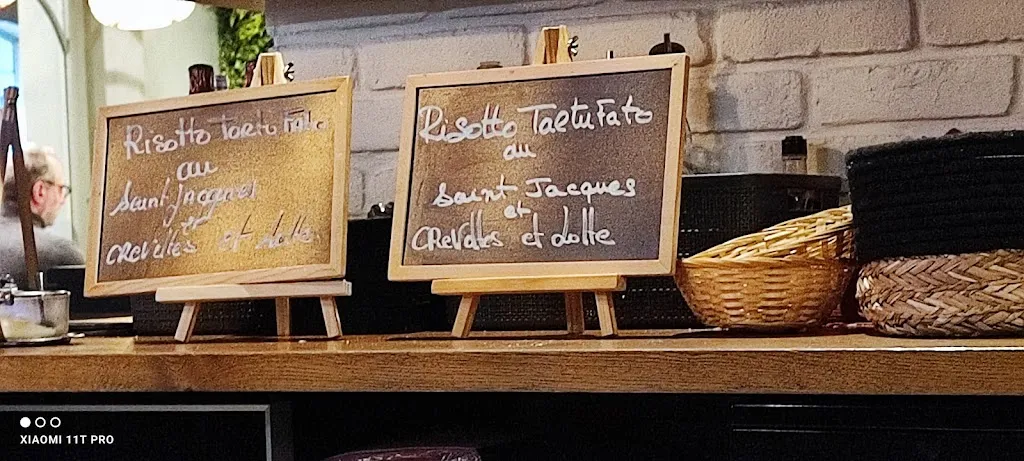 Risotto Tartufato
au
Saint Jacques
et
CREVettes et lotte
Risotto TaRtuFato
au
Saint Jacques
et
CReVettes et Lotte
XIAOMI 11T PRO